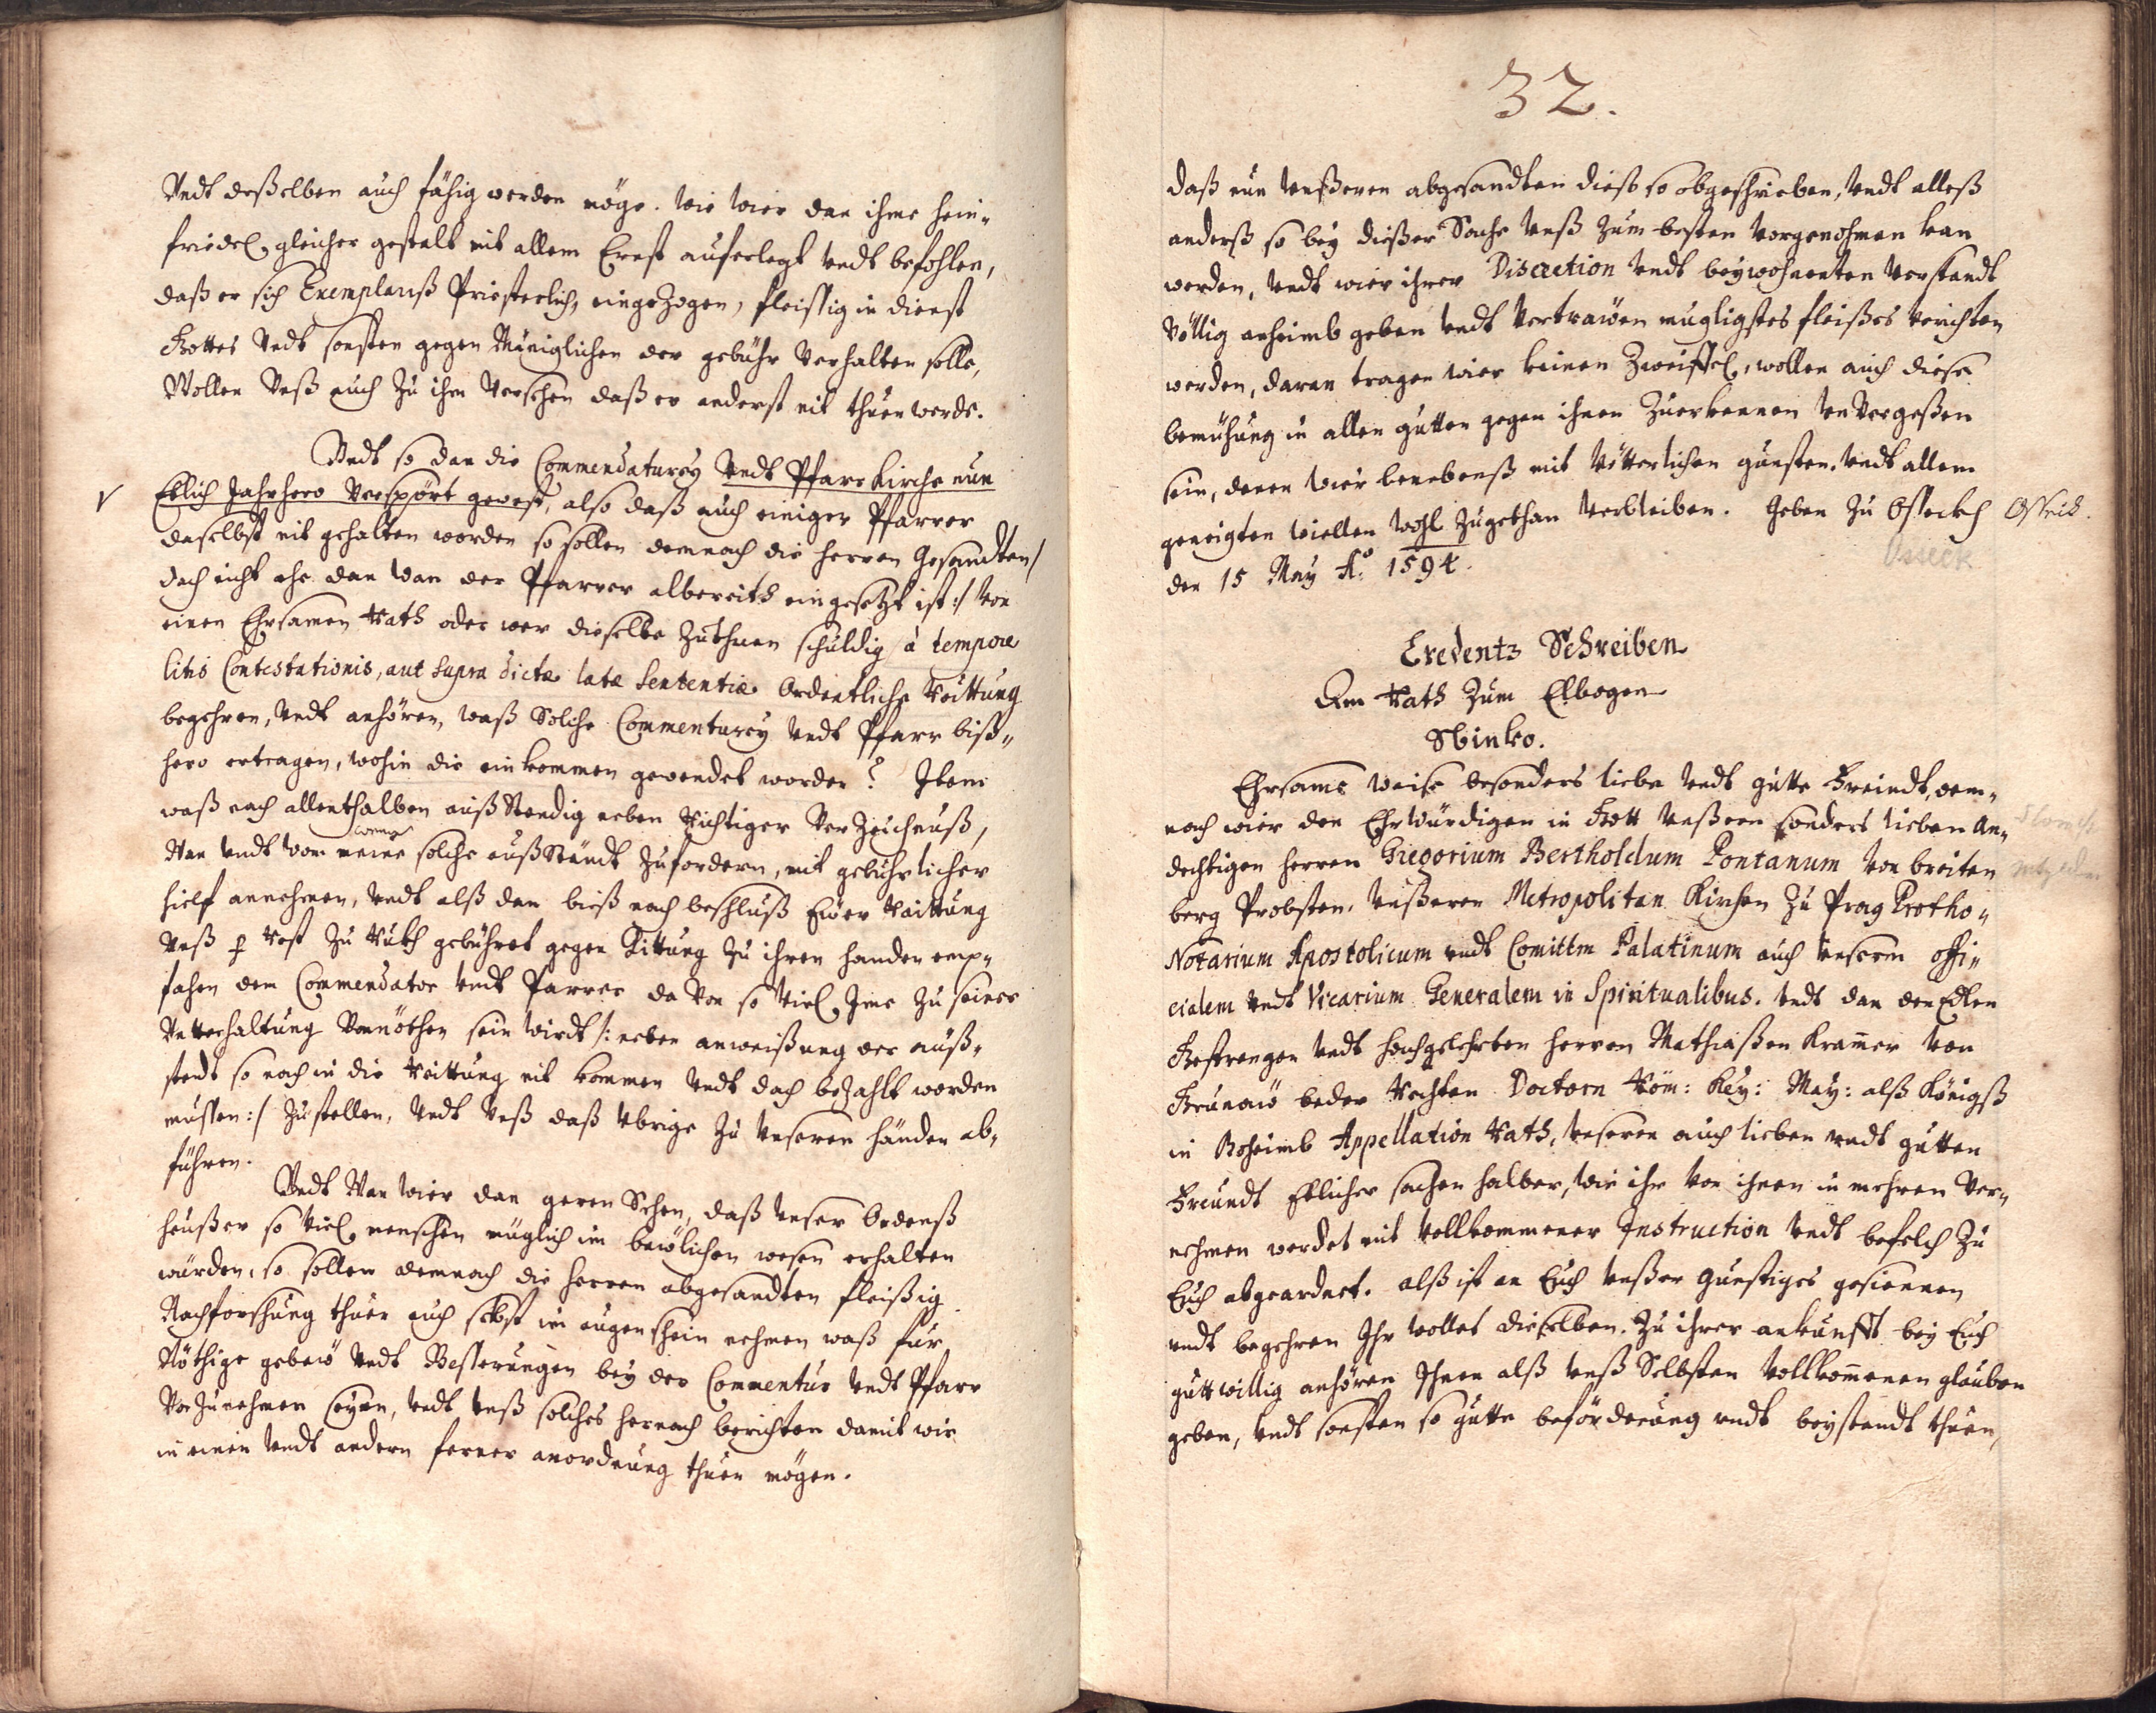 Vndt deßelben auch fähig werden möge. wie wier dan ihme hein„
friedel, gleicher gestalt mit allem Ernst auferlegt vndt befohlen,
daß er sich Exemplariß Priesterlich, eingezogen, fleissig in dienst
Gottes Vndt sonsten gegen Mäniglichen der gebühr Verhalten solle,
Wollen Vnß auch zu ihm Versehen daß er anderst nit thuen werde.
Vndt so dan die Commendaturey Vndt Pfarr Kirche nun
Etlich Jahr hero Verspört gewest, also daß auch einiger Pfarrer
daselbst nit gehalten worden so sollen demnach die herren Gesandten /
doch nicht ehe dan Wan der Pfarrer albereith eingesetzt ist :/ Von
einen Ehrsamen Rath oder wer dieselbe zuthuen schuldig à tempore
litis Contestationis, aut supra dictæ latæ sententiæ Ordentliche Reittung
begehren, Vndt anhören, waß Solche Commenturey Vndt Pfarr biß„
hero ertragen, wohin die einkommen gewendet worden? Item
waß noch allenthalben auß Stendig neben Richtiger Verzeichnuß,
Wan Vndt Von weme solche außständt zufordern, mit gebührlicher
hielf annehmen, Vndt alß dan bieß nach beschluß Euer Raittung
Vnß p Rest zu Ruckh gebühret gegen Kittung zu ihren handen emp„
fahen dem Commendator Vndt Parrer da Von so Viel Ime zu seiner
Vntterhaltung Vonnöthen sein wirdt /: neben anweißung der auß„
stendt so noch in die Reittung nit kommen Vndt doch bezahlt werden
mussen :/ Zustellen, Vndt Vnß daß Vbrige zu Vnseren händen ab„
führen.
Vndt Wan wier dan geren Sehen, daß Vnser Ordenß
heußer so Viel menschen müglich im bewlichen wesen erhalten
würden, so sollen demnach die herren abgesandten fleißig
Nachforschung thuen auch selbst im augenschein nehmen waß für
Nöthige gebew Vndt Besserungen bey der Commentur Vndt Pfarr
Vorzunehmen seyen, Vndt Vnß solches hernach berichten damit wir
in einen Vndt andern ferner anordnung thuen mögen.
32.
daß nun Vnßeren abgesandten dieß so obgeschrieben, Vndt alleß
anderß so bey dießer Sache Vnß zum besten Vorgenohmen kan
werden, Vndt wier ihrer Discretion Vndt beywohnenten Verstandt
Völlig anheimb geben Vndt Vertrawen mugligstes fleißes Verichten
werden, daran tragen wier keinen Zweiffel, wollen auch diese
bemühung in allen gutten gegen ihnen Zuerkennen Vnvergeßen
sein, denen wier benebenß mit Vätterlichen gunsten Vndt allem
geneigten Wiellen Wohl zugethan Verbleiben. Geben zu Osseckh Osseck.
den 15 May Ao. 1594. Osseck
Credentz Schreiben
An Rath zum Elbogen
Sbinko.
Ehrsame Weise besonders liebe Vndt gutte Freindt, dem„
nach wier den Ehrwürdigen in Gott Vnßeren sonders lieben An„
dechtigen herren Gregorium Bertholdum Pontanum Von breiten
berg Probsten Vnßeren Metropolitan Kirchen zu Prag Protho„
Notarium Apostolicum vndt Comittm Palatinum auch Vnserm offi„
cialem Vndt Vicarium Generalem in Spiritualibus. Vndt dan den Edlen
Gestrengen Vndt hochgelehrten herren Mathiaßen Kramer Von
Grunaw beder Rechten Doctorn Röm: Key: May: alß Königß
in Boheimb Appellation Rath, Vnseren auch lieben Vndt gutten
Freundt Etlicher sachen halber, wie ihr Von ihnen in mehren Ver„
nehmen werdet mit Vollkommener Instruction Vndt befelch zu
Euch abgeordnet. alß ist an Euch Vnßer Gunstiges gesiennen
vndt begehren Ihr wollet dieselben. zu ihrer ankunfft bey Euch
guttwillig anhören Ihnen alß Vnß Selbsten Vollkommenen glauben
geben, Vndt sonsten so gutte beförderung vndt beystandt thuen,